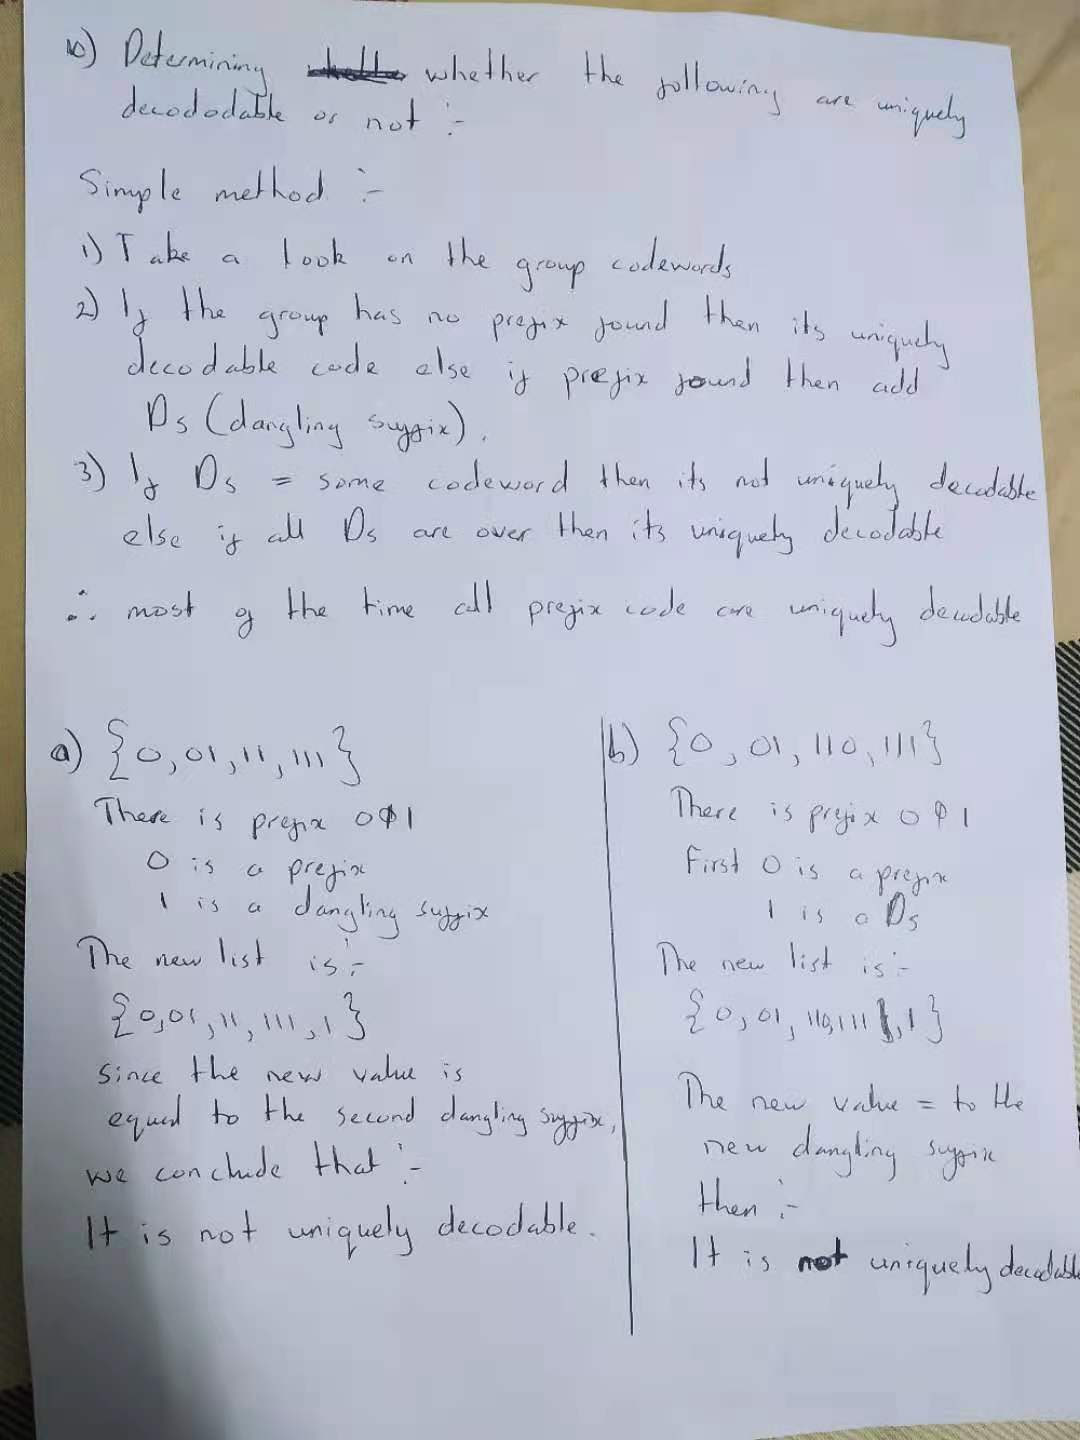 10) Determining whether the following are uniquely
decododable or not :-
Simple method :-
1) Take a look on the group codewords
2) If the group has no prefix found then its uniquely
decodable code else if prefix found then add
Ds (dangling suffix).
3) If Ds = some codeword then its not uniquely decodable
else if all Ds are over then its uniquely decodable
∴ most of the time all prefix code are uniquely decodable
a) {0,01,11,111}
There is prefix 0 & 1
0 is a prefix
1 is a dangling suffix
The new list is :-
{0,01,11,111,1}
Since the new value is
equal to the second dangling suffix,
we conclude that :-
It is not uniquely decodable.
b) {0,01,110,111}
There is prefix 0 & 1
First 0 is a prefix
1 is a Ds
The new list is :-
{0,01,110,111,1}
The new value = to the
new dangling suffix
then :-
It is not uniquely decodable